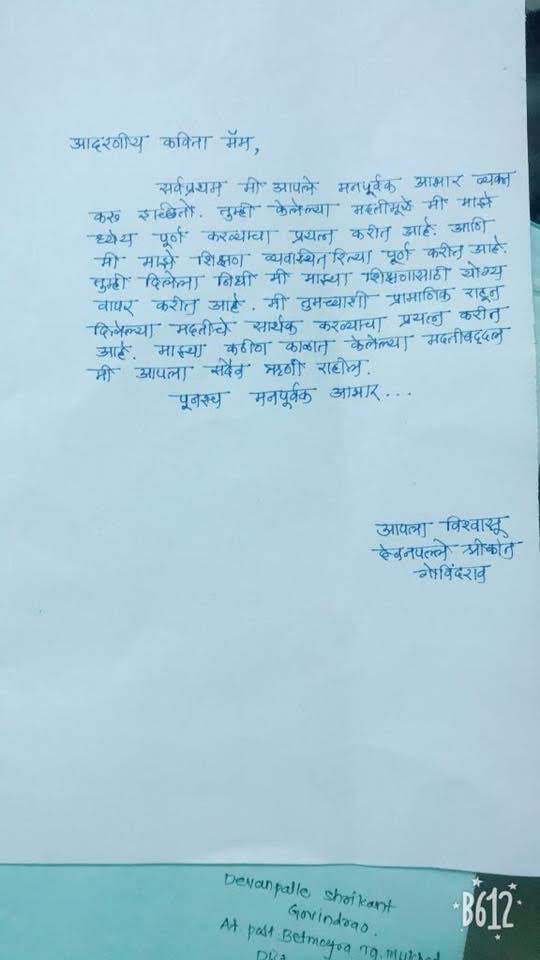 आदरणीय कविता मॅम,
सर्वप्रथम मी आपले मनपूर्वक आभार व्यक्त
करू इच्छितो. तुम्ही केलेल्या मदतीमूळे मी माझे
ध्येय पूर्ण करण्याचा प्रयत्न करीत आहे. आणि
मी माझे शिक्षण व्यवस्थित रित्या पूर्ण करीत आहे.
तुम्ही दिलेला निधी मी माझ्या शिक्षणासाठी योग्य
वापर करीत आहे. मी तुमच्याशी प्रामाणिक राहून
दिलेल्या मदतीचे सार्थक करण्याचा प्रयत्न करीत
आहे. माझ्या कठीण काळात केलेल्या मदतीबद्दल
मी आपला सदैव ऋणी राहील.
पूनश्च मनपूर्वक आभार...
आपला विश्वासू
देवनपल्ले श्रीकांत
गोविंदराव
Devanpalle Shrikant
Govindrao.
At post Betmogra Tq. Mukhed
B612